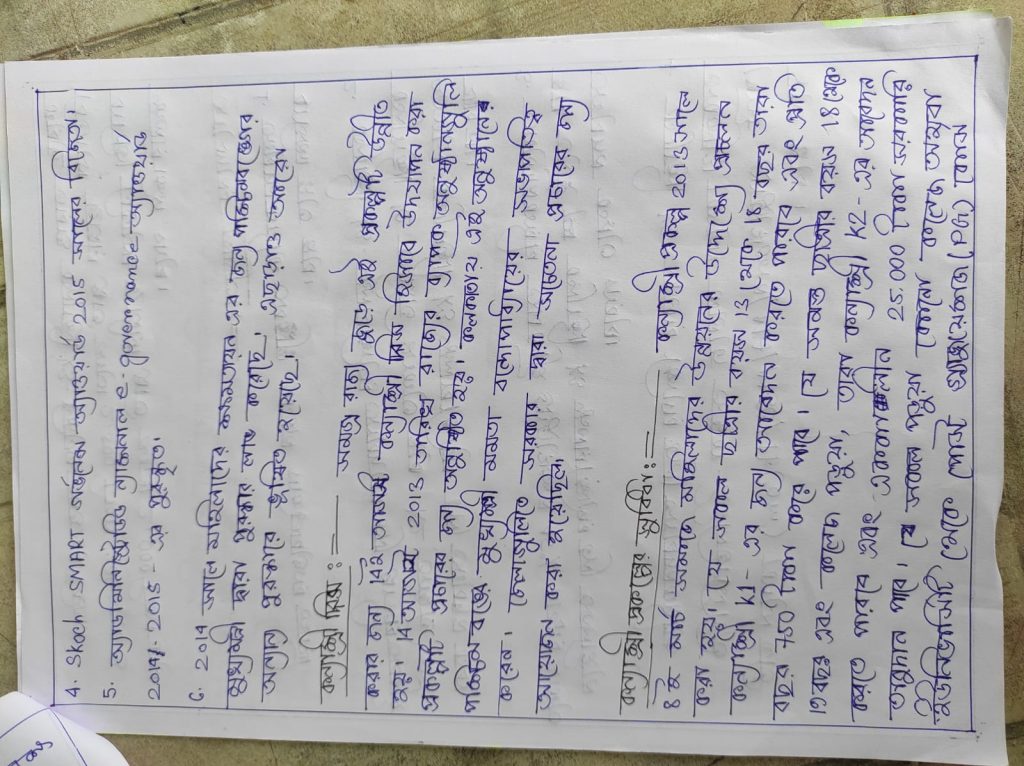 4. Skoch SMART গর্ভনেন্স অ্যাওয়ার্ড 2015 সালের বিজেতা।
5. অ্যাডমিনিস্ট্রেটিভ ন্যাশনাল e-governance অ্যাওয়ার্ড
2014-2015 -এর পুরস্কৃত।
6. 2014 সালে মহিলাদের ক্ষমতায়ন এর জন্য পরিকল্পনা
মুখ্যমন্ত্রী দ্বারা পুরস্কার লাভ করেছে, এছাড়াও অসংখ্য
অন্যান্য পুরস্কারে ভূষিত হয়েছে।
কন্যাশ্রী দিবস :— সমগ্র রাজ্য জুড়ে এই প্রকল্পটি উন্নীত
করার জন্য 14ই আগস্ট কন্যাশ্রী দিবস হিসাবে উদযাপন করা
হয়। 14 আগস্ট 2013 তারিখে রাজ্যের ব্যাপক অনুষ্ঠানগুলি
প্রকল্পটি প্রচারের জন্য অনুষ্ঠিত হয়। কলকাতায় এই অনুষ্ঠানের
পশ্চিমবঙ্গের মুখ্যমন্ত্রী মমতা বন্দোপাধ্যায়ের সভাপতিত্ব
করেন। জেলাগুলিতে সরকার দ্বারা সচেতনা প্রচারের জন্য
আয়োজন করা হয়েছিল।
কন্যাশ্রী প্রকল্পের সুবিধা :— কন্যাশ্রী প্রকল্প 2013 সালে
8ই মার্চ সরকার মহিলাদের উন্নয়নের উদ্দেশ্যে প্রচলন
করা হয়। যে সকল ছাত্রীর বয়স 13 থেকে 18 বছর তারা
কন্যাশ্রী K1 - এর জন্য আবেদন করতে পারবে এবং প্রতি
বছর 750 টাকা করে পাবে। যে সমস্ত ছাত্রীর বয়স 18 থেকে
19 বছর এবং কলেজ পড়ুয়া, তারা কন্যাশ্রী K2 - এর আবেদন
করতে পারবে এবং এককালীন 25000 টাকা সরকারের
অনুদান পাবে। যে সকল পড়ুয়া কলেজ অথবা
ইউনিভার্সিটি থেকে পোস্ট গ্রাজুয়েশন (PG) লেভেল